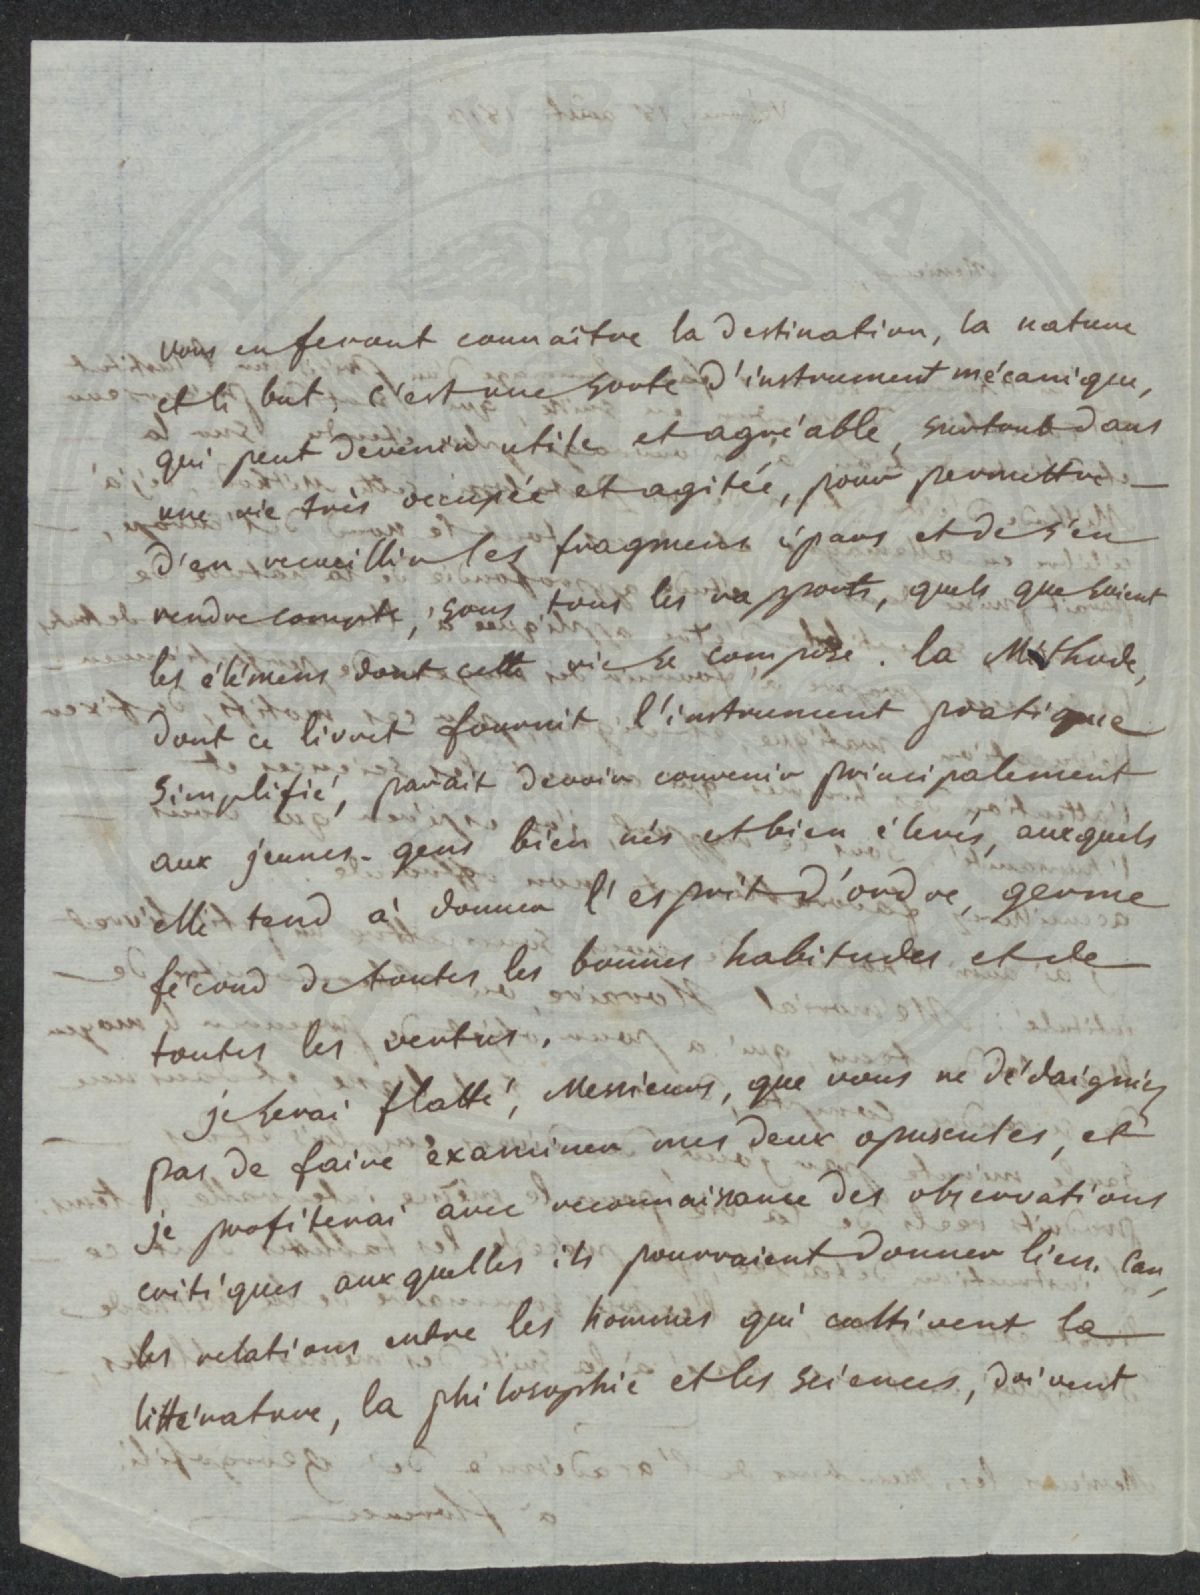 vous en feront connaître la destination, la nature
et le but. c'est une sorte d'instrument mécanique,
qui peut devenir utile et agréable, surtout dans
une vie très occupée et agitée, pour permettre
d'en recueillir les fragmens épars et de s'en
rendre compte, sous tous les rapports, quels que soient
les élémens dont cette vie se compose. la Méthode,
dont ce livret fournit l'instrument pratique
simplifié, parait devoir convenir principalement
aux jeunes-gens bien nés et bien élevés, auxquels
elle tend à donner l'esprit d'ordre, germe
fécond de toutes les bonnes habitudes et de
toutes les vertus.
je serai flatté, Messieurs, que vous ne dédaigniez
pas de faire examiner mes deux opuscules, et
je profiterai avec reconnaissance des observations
critiques auxquelles ils pourraient donner lieu. Car,
les relations entre les hommes qui cultivent la
littérature, la philosophie et les sciences, doivent